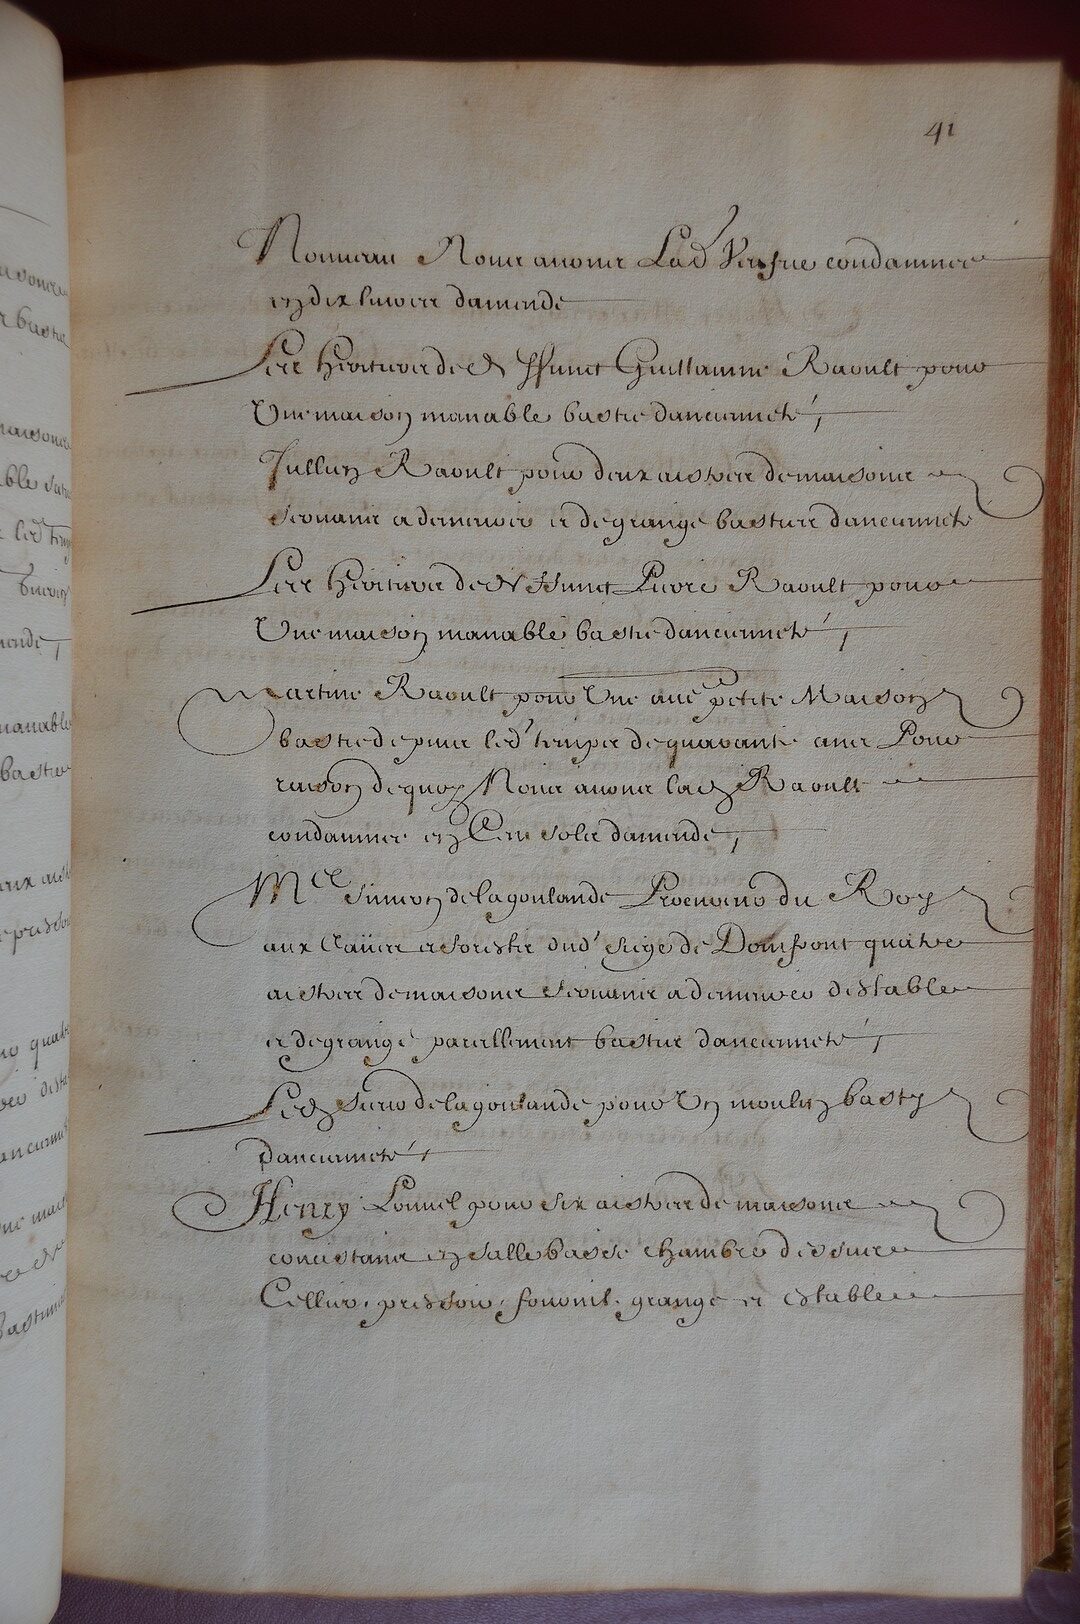 41
Nouueau Nous auons Lad Veufue condamnee
en dix liures damende
Les heritiers de deffunct Guillaume Raoult pour
Une maison manable bastie dancienneté,
Jullien Raoult pour deux aistres de maisons
seruans a demeurer et de grange bastis dancienneté
Les heritiers de deffunct Pierre Raoult pour
Une maison manable bastie dancienneté,
Martine Raoult pour Une petite Maison
bastie depuis led temps de quarante ans Pour
raison dequoy Nous auons lad Raoult
condamnee en Cent solz damende,
Mre Simeon de lagoulande Procureur du Roy
aux Eaües et forestz dud siege de Domfront quatre
aistres de maisons seruans a demeurer destable
et de grange pareillement bastis dancienneté,
Led sieur de lagoulande pour Un moulin basty
dancienneté,
Henry Louuel pour six aistres de maisons
concistans en salle basse chambre dessus
Cellier, pressoir, fournil, grange et estable